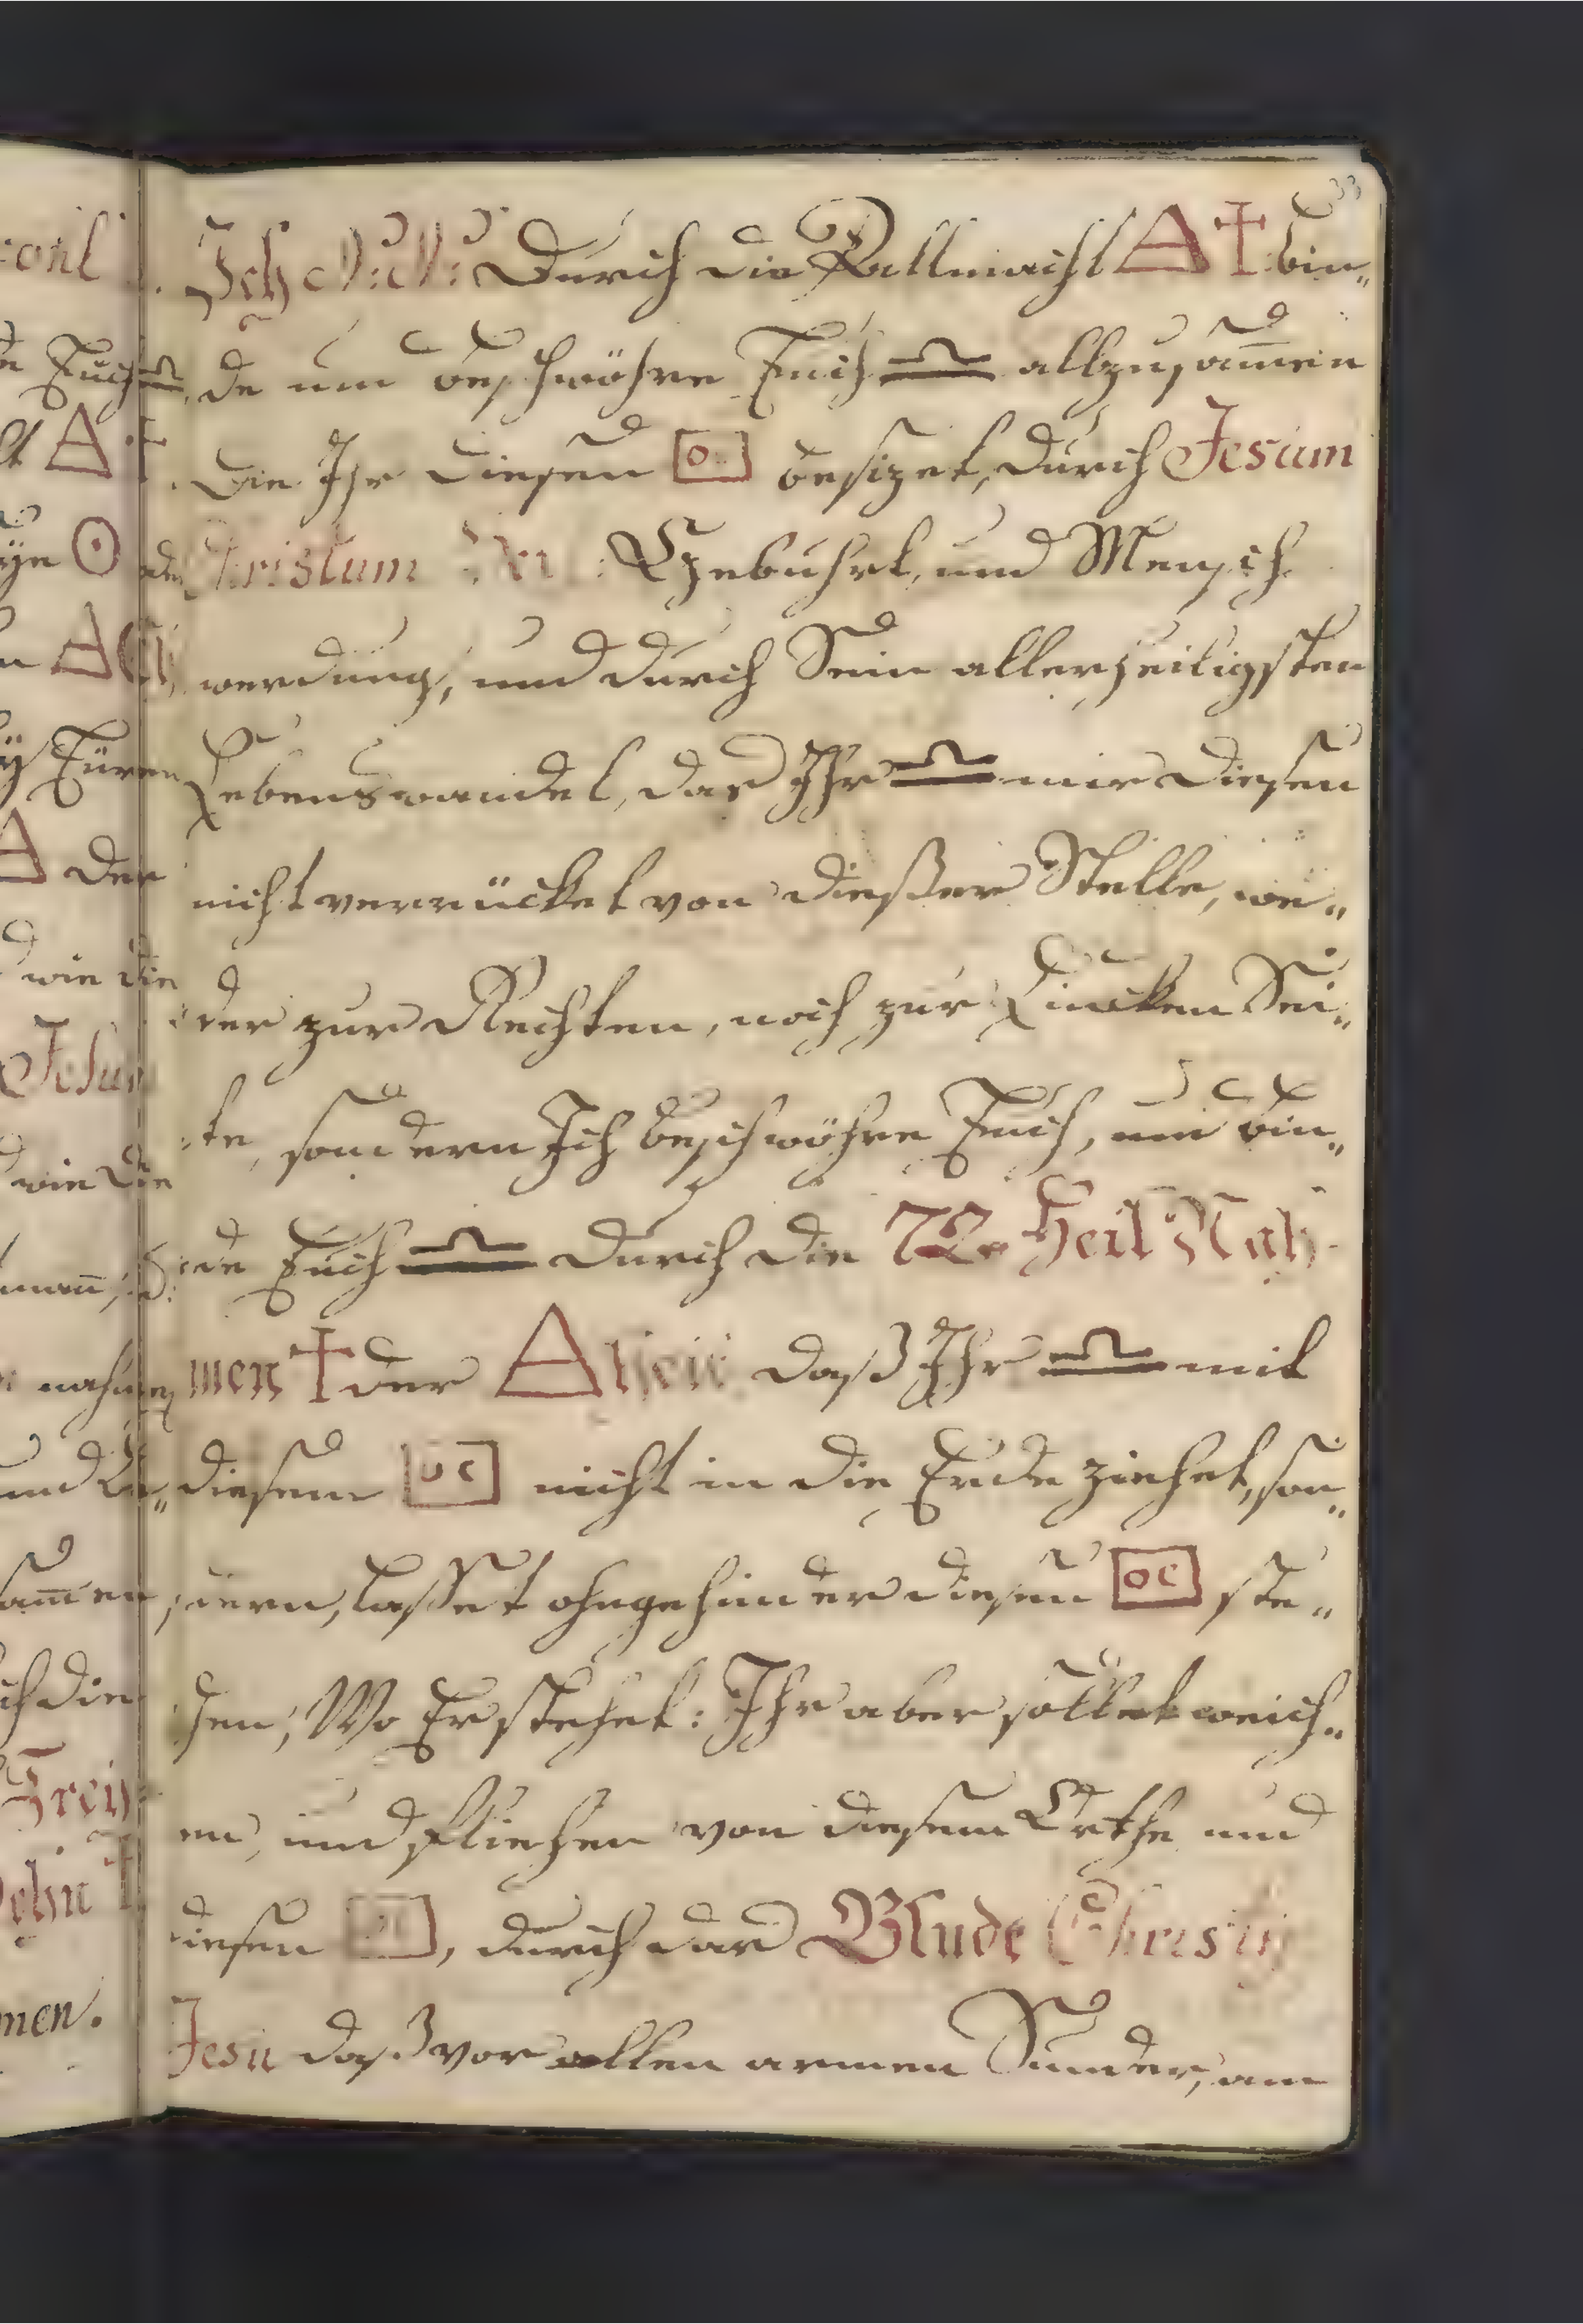 33
Ich N: N: Durch die Allmacht △ ✝ bin„
de und beschwöhre Euch ♎ allzusam̄en
Die Ihr diesen besizet, durch Jesum
Christum Gebuhrt, und Mensch
werdung, und durch Sein allerheiligsten
Lebenswandel, das Ihr ♎ mir diesen
nicht verrücket von dießer Stelle, we„
der zur Rechten, noch zur Lincken Sei„
te, sondern Ich beschwöhre Euch, und bin„
de Euch ♎ durch die 72 Heil Nah
men ✝ der △ daß Ihr ♎ mit
diesem nicht in die Erde ziehet, son„
dern, lasset ohngehinder diesen ste„
hen, Wo Er stehet: Ihr aber sollet weich„
en, und fliehen von diesem Orthe und
diesen , durch das Blude Christy
Jesu daß vor allen armen Sünder, am